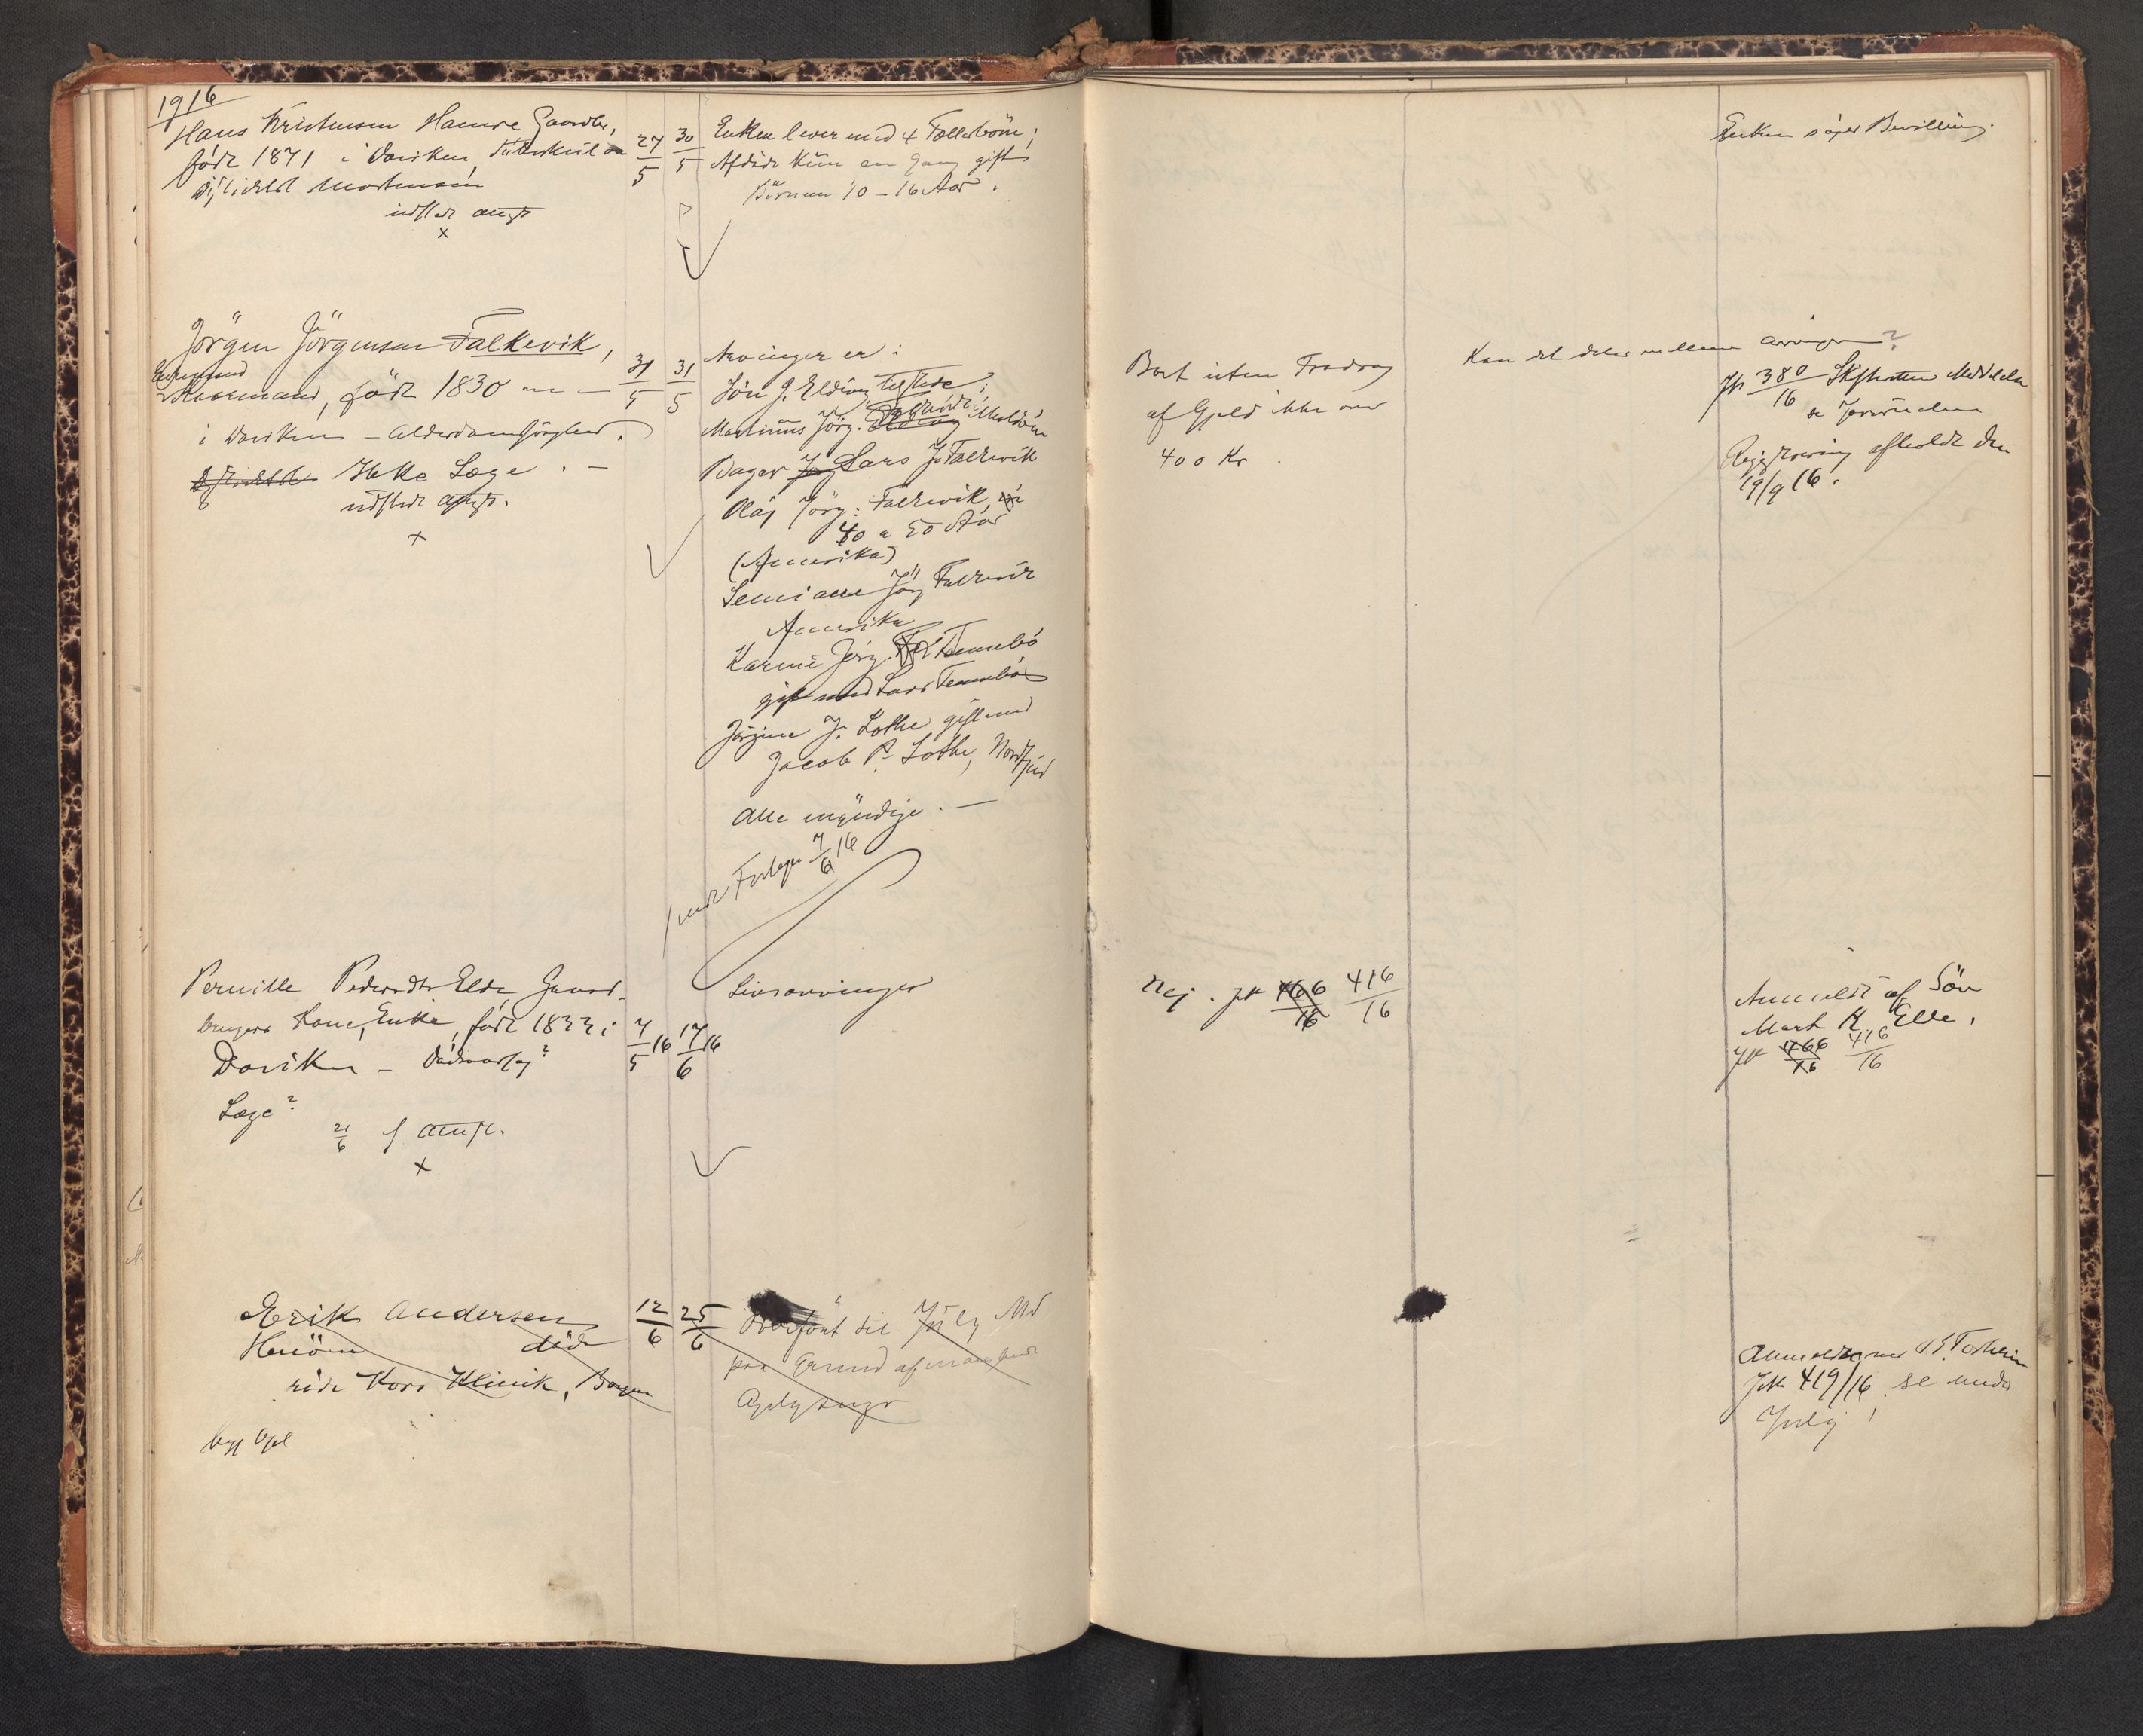 1916
Hans Kristensen Hamre Gaardbr,
født 1871 i Daviken, Tuberkulose
Distriktsl Mortensen
udstedt attest
x
27/5
30/5
Enken lever med 4 Fællesbörn;
Afdöde kun en Gang gift
Börnene 10 – 16 Aar.
Enken søger Bevilling.
Jörgen Jörgensen Falkevik,
Enkemand
Kaarmand, født 1830 –
i Daviken – Alderdomssvaghed.
Ikke Læge. –
udstedt attest.
x
31/5
31/5
Arvinger er:
Sön J. Elding tilstede;
Martinus Jörg. Maldöen
Bager Lars J. Falkevik
Olaj Jörg: Falkevik
40 a 50 Aar
(Amerika)
Jörg Falkevik
Amerika
Karine Jörg. Tennebö
gift med Lars Tennebö
Jörgine J. Lothe gift med
Jacob P. Lothe, Nordfjord
Alle myndige. –
7/6 16
Bort uten Fradrag
af Gjeld ikke over
400 Kr.
Kan det deles mellem Arvingerne?
Jr 380/16 Skifteretten Meddelelse
Registrering afholdt den
19/9 16.
Pernille Pedersdtr Elde, Gaard-
brugers Kone, Enke, født 1833 i
Daviken – Dødsaarsag?
Læge?
21/6 f attest.
x
7/5 16
17/6 16
Livsarvinger
Nej. Jr 466/16 416/16
Anmeldt af Sön
Mart K. Elde.
Jr 466/16 416/16
Erik Andersen
Henöen död
röde Kors Klinik, Bergen
12/6
25/6
Overført til July Md
paa Grund af manglende
Oplysnger
Jr 419/16 se under
July!